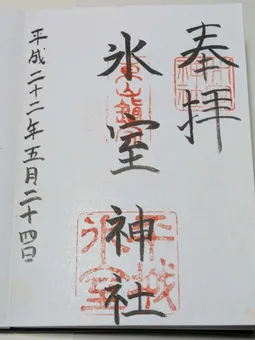 奉拝
氷室神社
平成二十二年五月二十四日
平城
氷室